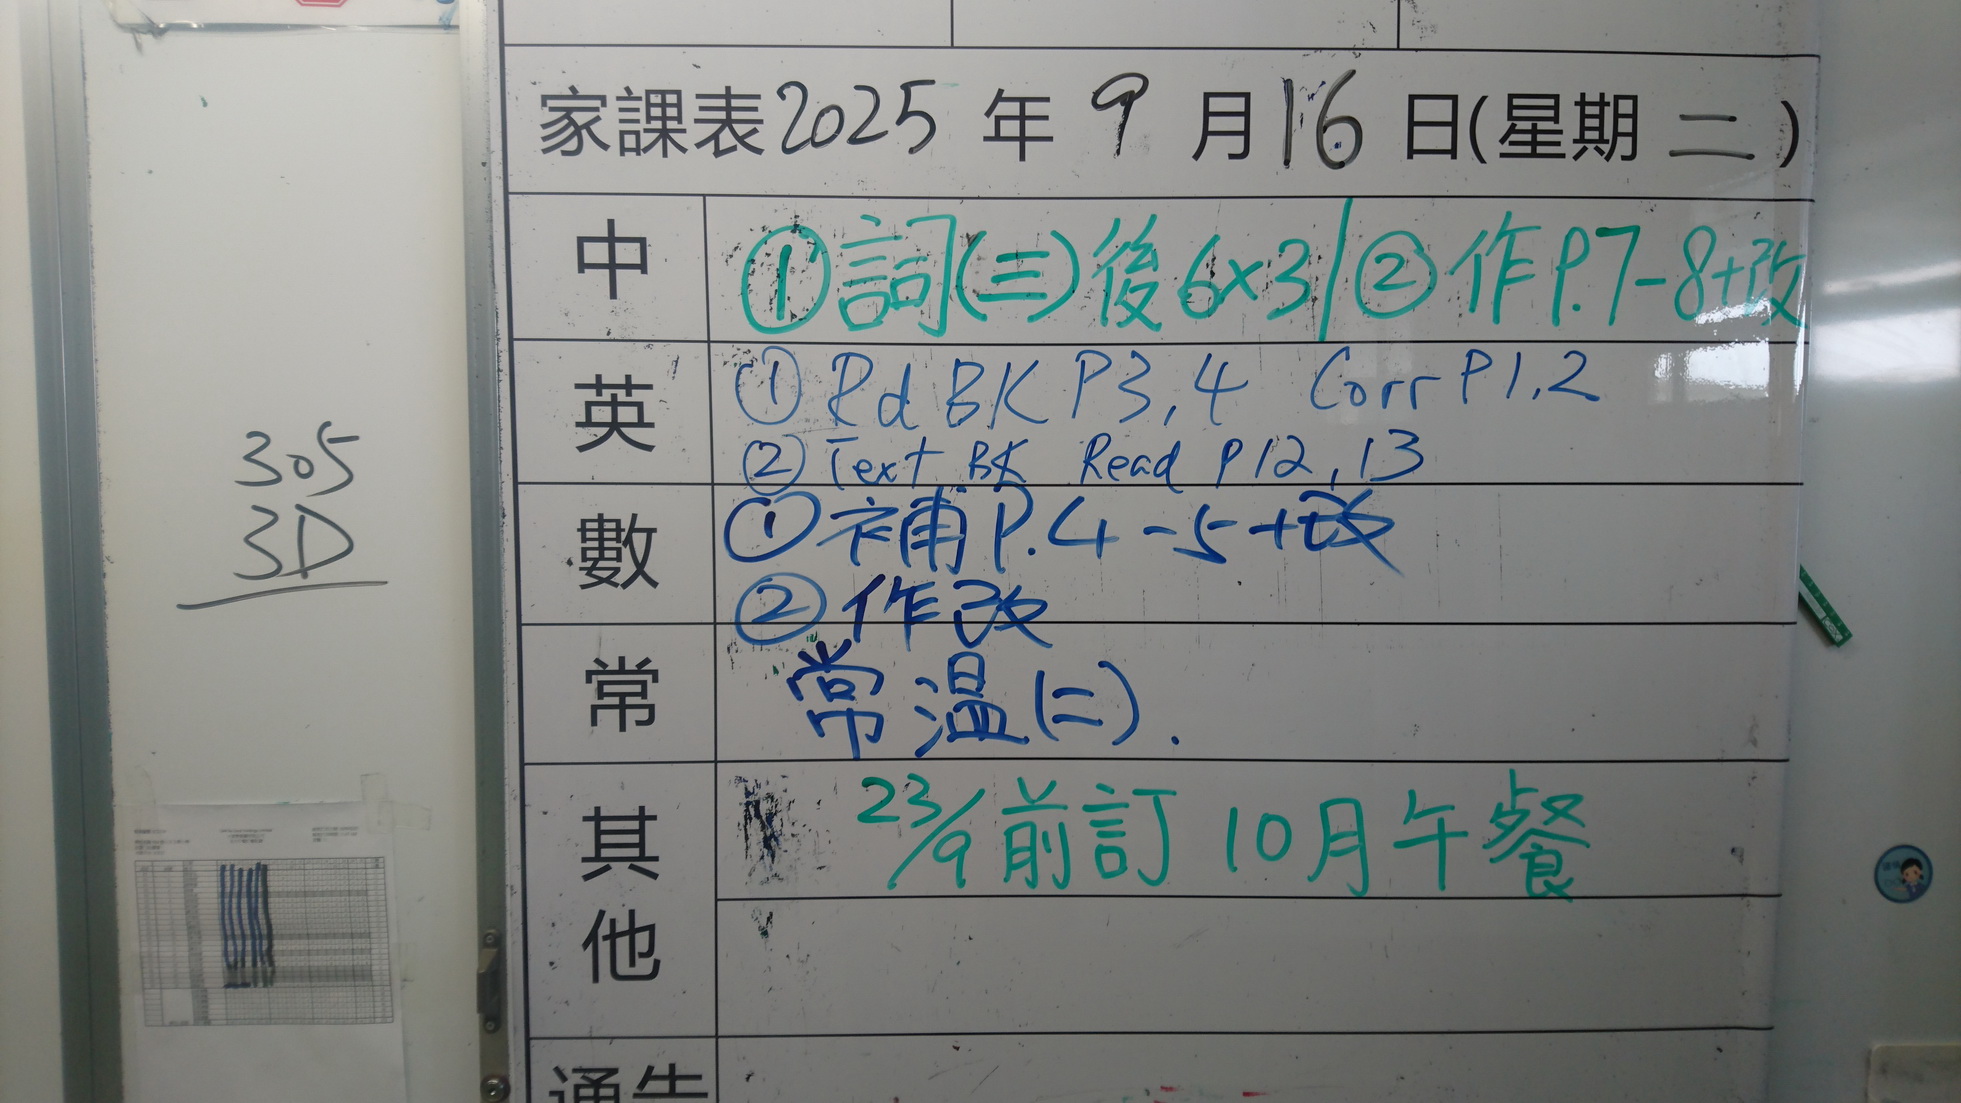 家課表2025年9月16日(星期二)
中
①詞(三)後6x3/②作P.7-8+改
英
①Rd BK P3,4 Corr P1,2
②Text BK Read P12,13
數
①補P.4-5+改
②作改
常
常溫(二).
其他
23/9前訂10月午餐
通告
305
3D